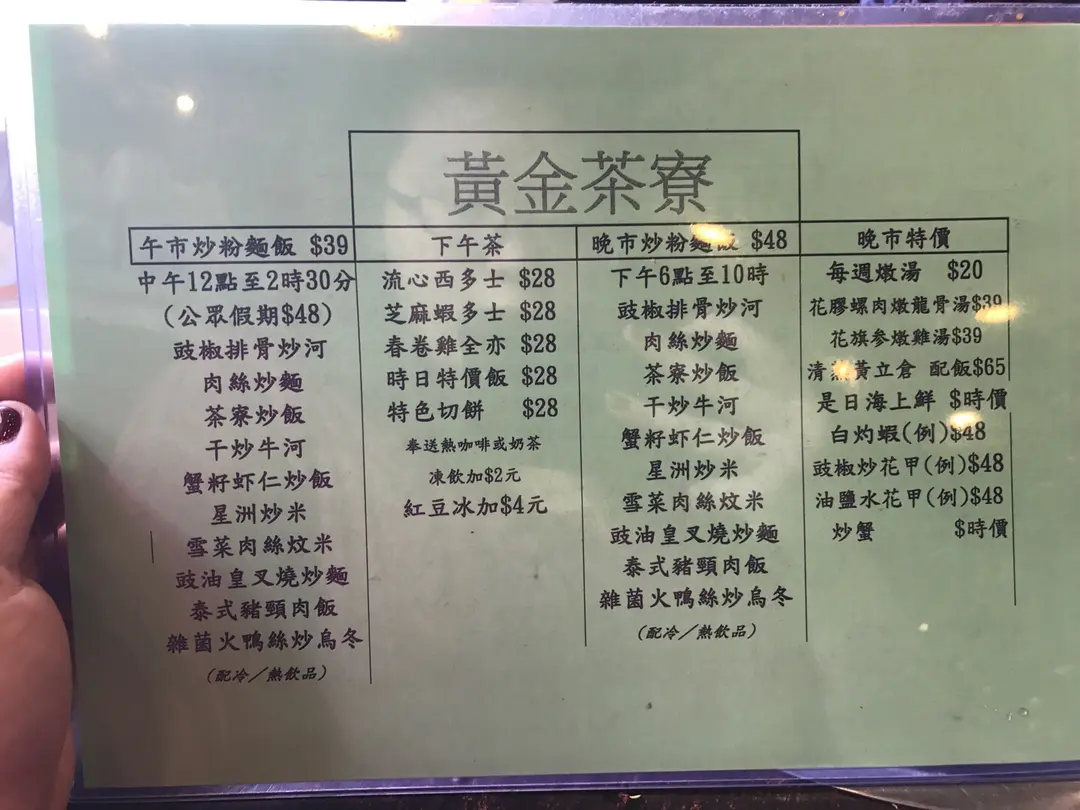 黃金茶寮
午市炒粉麵飯 $39
中午12點至2時30分
(公眾假期$48)
豉椒排骨炒河
肉絲炒麵
茶寮炒飯
干炒牛河
蟹籽虾仁炒飯
星洲炒米
雪菜肉絲炆米
豉油皇叉燒炒麵
泰式豬頸肉飯
雜菌火鴨絲炒烏冬
(配冷/熱飲品)
下午茶
流心西多士 $28
芝麻蝦多士 $28
春卷雞全亦 $28
時日特價飯 $28
特色切餅 $28
奉送熱咖啡或奶茶
凍飲加$2元
紅豆冰加$4元
晚市炒粉麵飯 $48
下午6點至10時
豉椒排骨炒河
肉絲炒麵
茶寮炒飯
干炒牛河
蟹籽虾仁炒飯
星洲炒米
雪菜肉絲炆米
豉油皇叉燒炒麵
泰式豬頸肉飯
雜菌火鴨絲炒烏冬
(配冷/熱飲品)
晚市特價
每週燉湯 $20
花膠螺肉燉龍骨湯$39
花旗参燉雞湯$39
清蒸黃立倉 配飯$65
是日海上鮮 $時價
白灼蝦(例)$48
豉椒炒花甲(例)$48
油鹽水花甲(例)$48
炒蟹 $時價